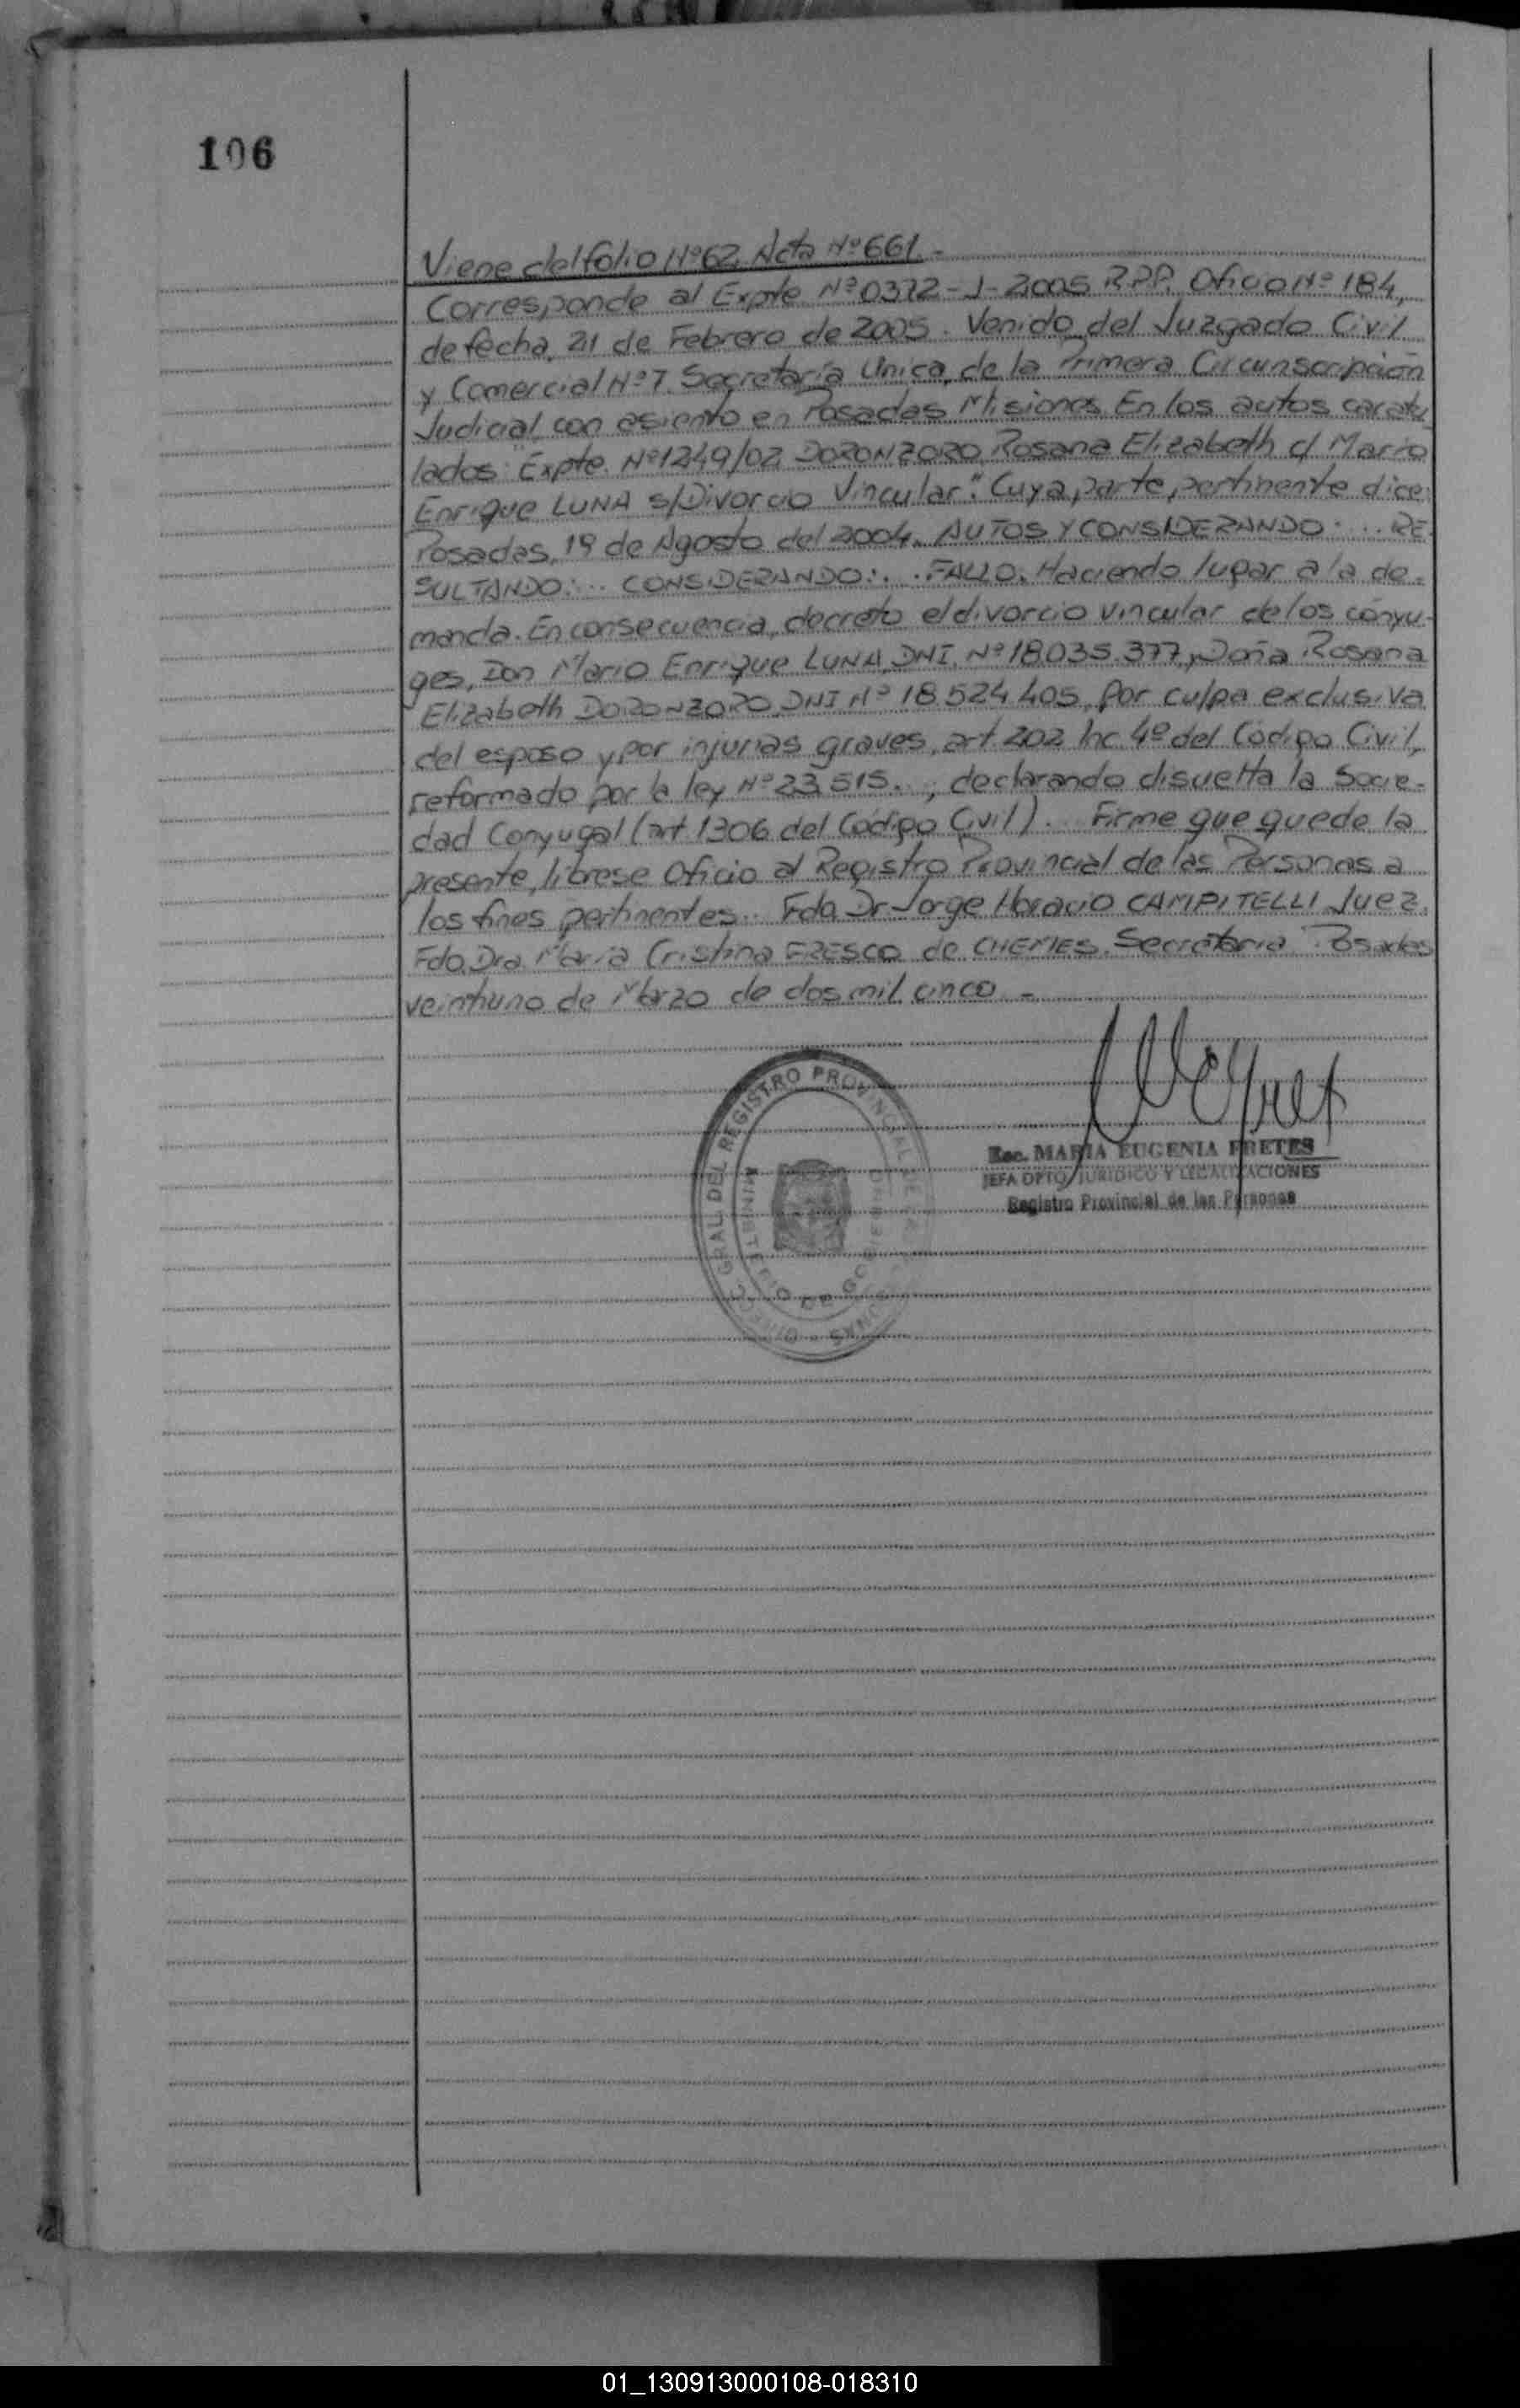 106
Viene del folio Nº 62 Acta Nº 661.-
Corresponde al Expte Nº 0372-J-2005 R.P.P. Oficio Nº 184,
de fecha, 21 de Febrero de 2005. Venido del Juzgado Civil
y Comercial Nº 7. Secretaría Unica, de la Primera Circunscripción
Judicial, con asiento en Posadas Misiones. En los autos caratu
lados: "Expte. Nº 1249/02 DORONZORO, Rosana Elizabeth c/ Mario
Enrique LUNA s/Divorcio Vincular". Cuya parte pertinente dice:
Posadas, 19 de Agosto del 2004. AUTOS Y CONSIDERANDO:... RE-
SULTANDO:... CONSIDERANDO:... FALLO. Haciendo lugar a la de-
manda. En consecuencia, decreto el divorcio vincular de los cónyu-
ges, Don Mario Enrique LUNA, DNI. Nº 18.035.377, y Doña Rosana
Elizabeth DORONZORO, DNI Nº 18.524.405, por culpa exclusiva
del esposo y por injurias graves, art 202 Inc. 4º del Código Civil,
reformado por la ley Nº 23.515. ; declarando disuelta la Socie-
dad Conyugal (art. 1306 del Código Civil)... Firme que quede la
presente, líbrese Oficio al Registro Provincial de las Personas a
los fines pertinentes... Fdo. Dr. Jorge Horacio CAMPITELLI Juez.
Fdo. Dra. María Cristina FRESCO de CHEMES. Secretaria". Posadas
veintiuno de Marzo de dos mil cinco.-
DIRECC. GRAL. DEL REGISTRO PROVINCIAL DE LAS PERSONAS
MINISTERIO DE GOBIERNO
Esc. MARIA EUGENIA FRETES
JEFA DPTO. JURIDICO Y LEGALIZACIONES
Registro Provincial de las Personas
01_130913000108-018310